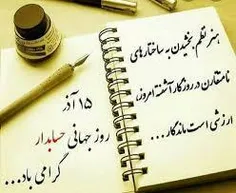 هنر نظم بخشیدن به ساختارهای
نامتقارن در روزگار آشفته امروزی
ارزشی است ماندگار...
۱۵ آذر
روز جهانی حسابدار
گرامی باد...